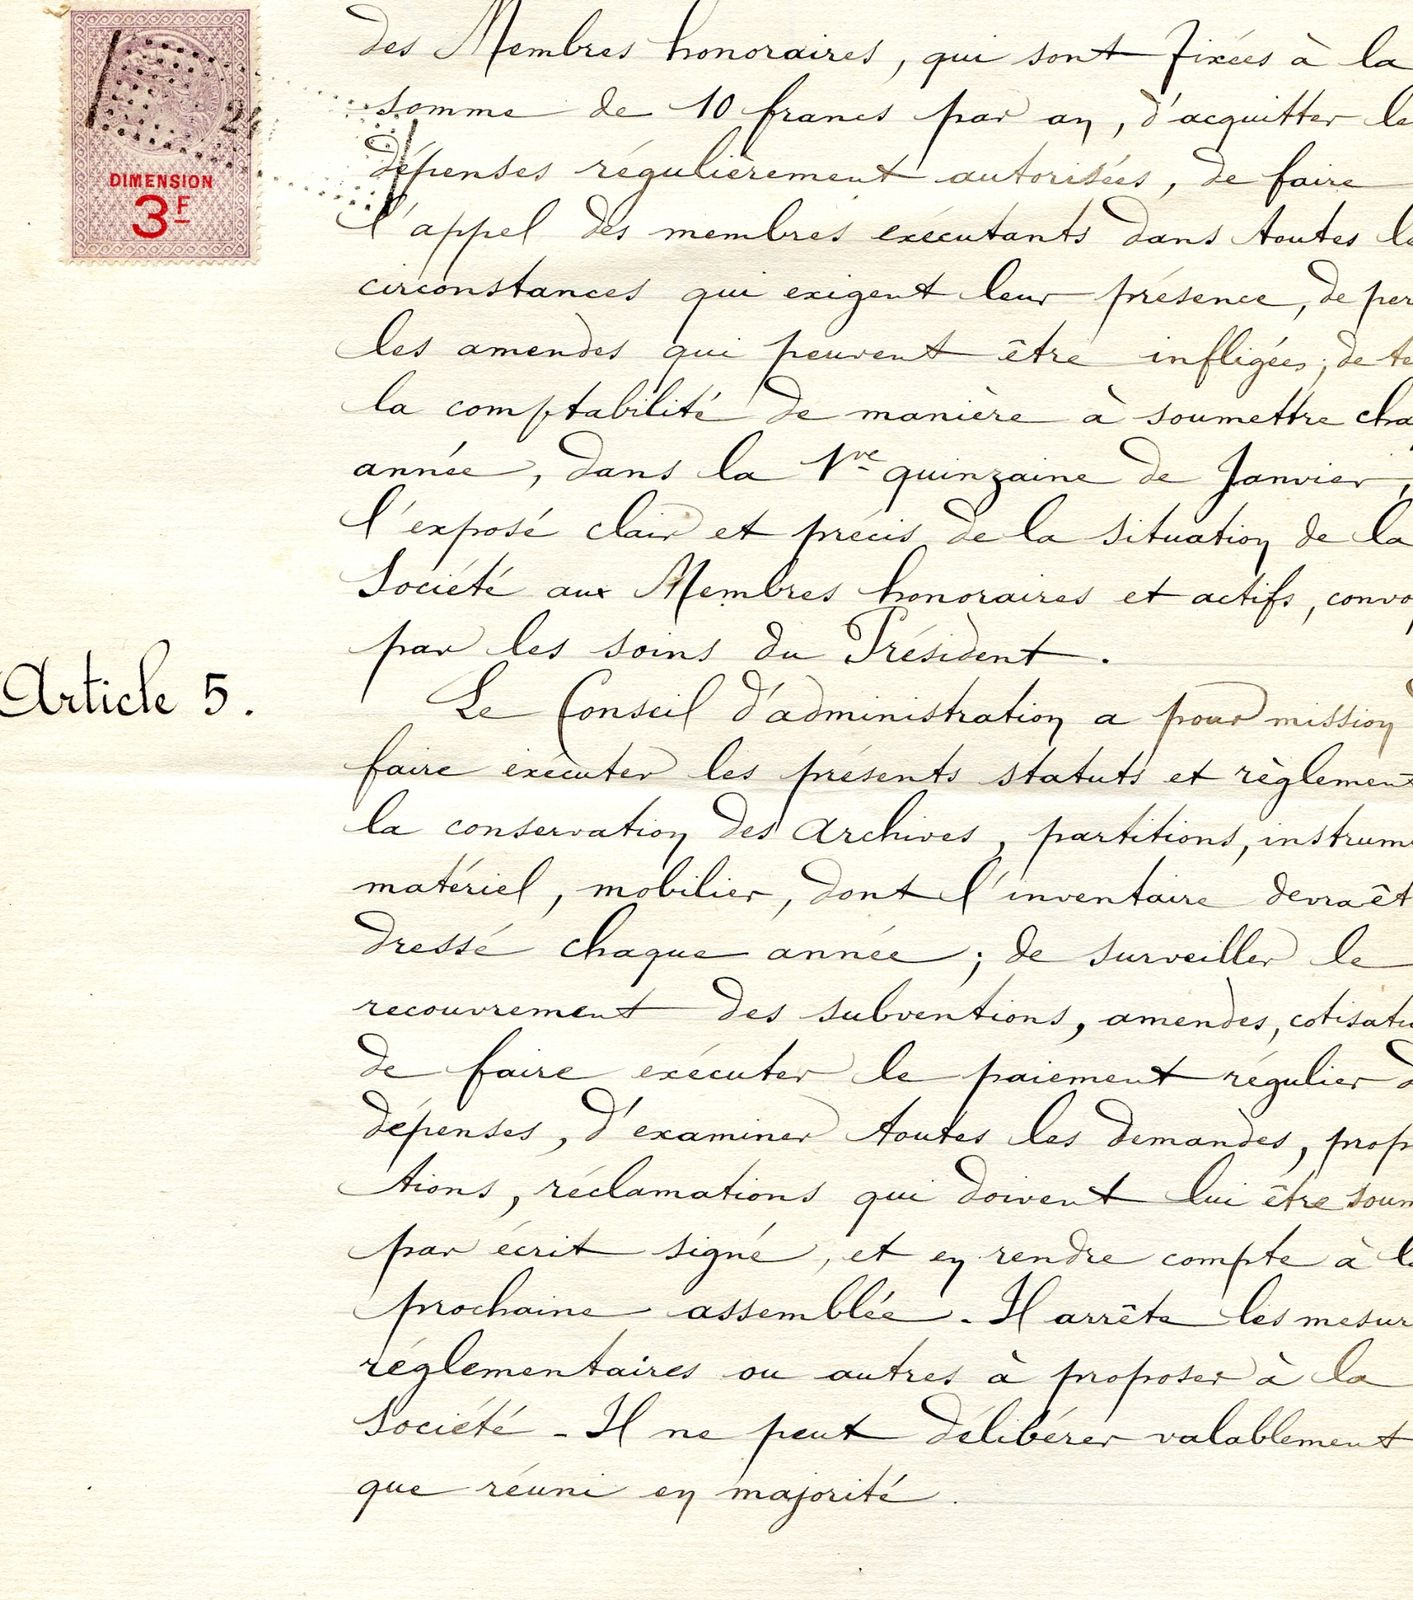 des Membres honoraires, qui sont fixées à la
somme de 10 francs par an, d'acquitter le
dépenses régulièrement autorisées, de faire
l'appel des membres exécutants dans toutes le
circonstances qui exigent leur présence, de per
les amendes qui peuvent être infligées; de te
la comptabilité de manière à soumettre cha
année, dans la 1re quinzaine de Janvier,
l'exposé clair et précis de la situation de la
Société aux Membres honoraires et actifs, convo
par les soins du Président.
Article 5.
Le Conseil d'administration a pour mission d
faire exécuter les présents statuts et règlement
la conservation des Archives, partitions, instrum
matériel, mobilier, dont l'inventaire devra êt
dressé chaque année; de surveiller le
recouvrement des subventions, amendes, cotisati
de faire exécuter le paiement régulier d
dépenses, d'examiner toutes les demandes, prop
tions, réclamations qui doivent lui être soum
par écrit signé, et en rendre compte à l
prochaine assemblée. Il arrête les mesur
réglementaires ou autres à proposer à la
Société - Il ne peut délibérer valablement
que réuni en majorité.
DIMENSION
3F